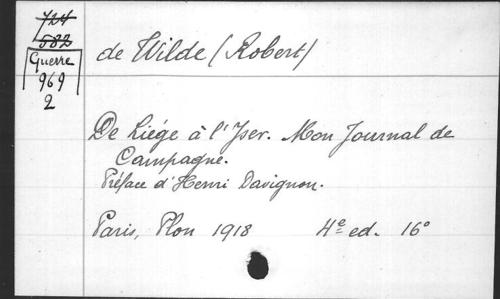 724
582
Guerre
969
2
de Wilde (Robert)
De Liége à l'Yser. Mon Journal de
Campagne.
Préface d'Henri Davignon.
Paris, Plon 1918 4e ed. 16°